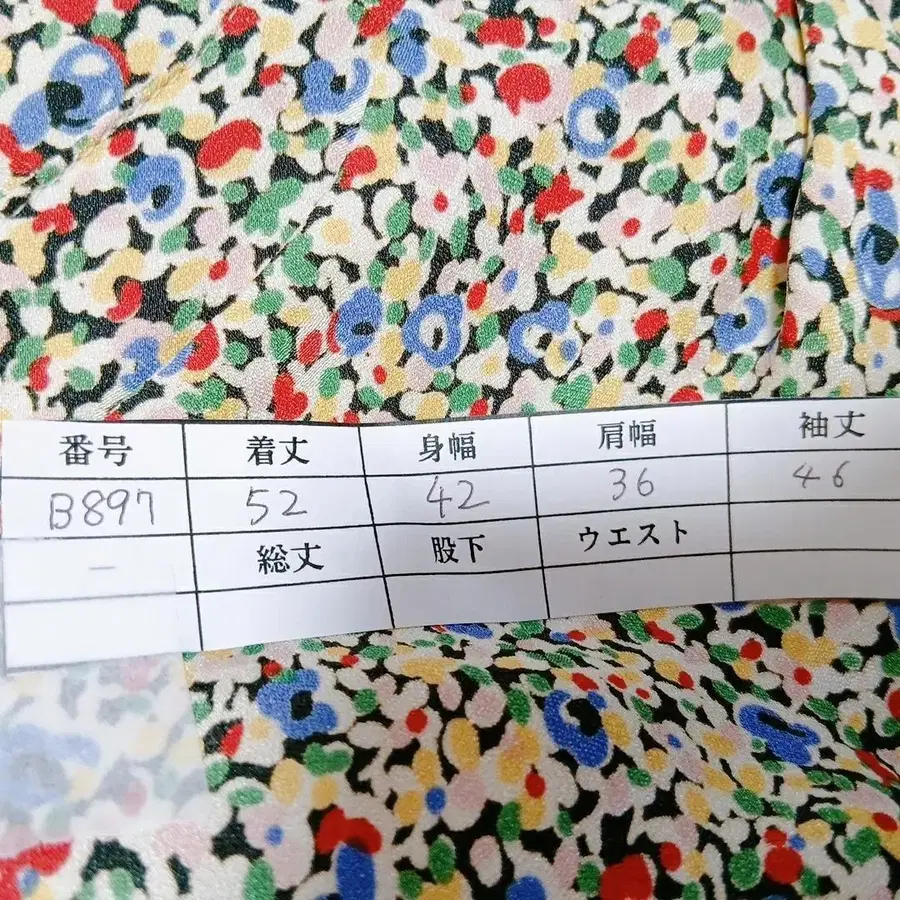 番号 着丈 身幅 肩幅 袖丈
B897 52 42 36 46
— 総丈 股下 ウエスト